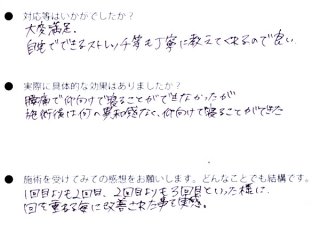 対応等はいかがでしたか？
大変満足。
自宅でできるストレッチ等も丁寧に教えてくれるので良い
実際に具体的な効果はありましたか？
腰痛で仰向けで寝ることができなかったが
施術後は何の異和感なく、仰向けで寝ることができた
施術を受けてみての感想をお願いします。どんなことでも結構です。
1回目よりも2回目、2回目よりも3回目といった様に
回を重ねる毎に改善された事を実感。